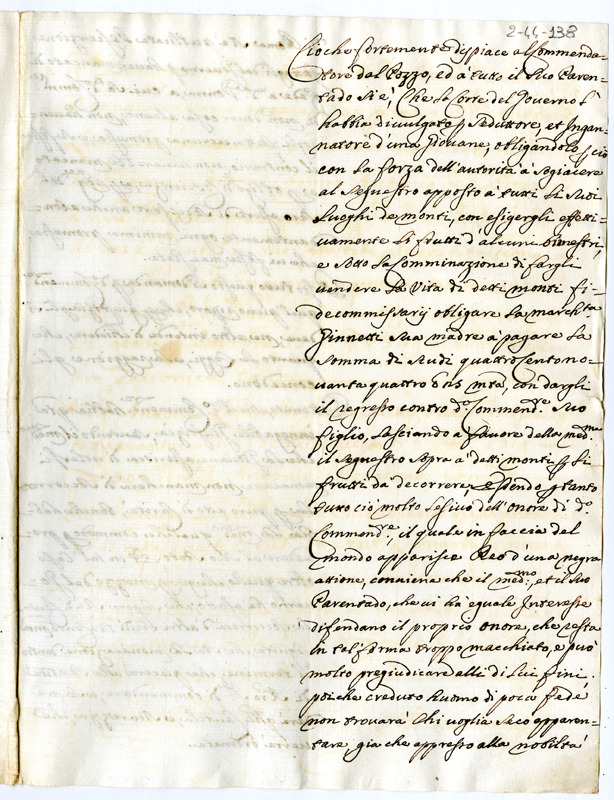 2-44-138
Cioche fortemente dispiace al Commenda=
tore dal Pozzo, ed à tutto il suo Paren=
tado si è, Che la Corte del Governo l'
habbia divulgato p seduttore, et Ingan=
natore d'una Giovane, obligandolo p ciò
con la forza dell'autorità à sogiacere
al sequestro apposto à tutti li suoi
luoghi de monti, con esigergli effetti=
vamente li frutti d'alcuni bimestri,
e sotto la Comminazione di fargli
vendere la vita di detti monti fi=
decommissarij obligare la marchsa
Ginnetti sua madre à pagare la
somma di scudi quattro Cento no=
vanta quattro mta, con dargli
il regresso contro do Commendre suo
figlio, lasciando a favore della medma
il sequestro sopra à detti monti p li
frutti da decorrere, essendo ptanto
tutto ciò molto lesivo dell'onore di do
Commendre, il quale in faccia del
mondo apparisce Reo d'una negra
attione, conviene che il medmo, et il suo
Parentado, che vi hà eguale Interesse
difendano il proprio onore, che resta
in tal forma troppo macchiato, e può
molto pregiudicare alli di lui fini.
poi che creduto huomo di poca fede
non trovarà Chi voglia seco apparen=
tare, già che appresso alla nobiltà